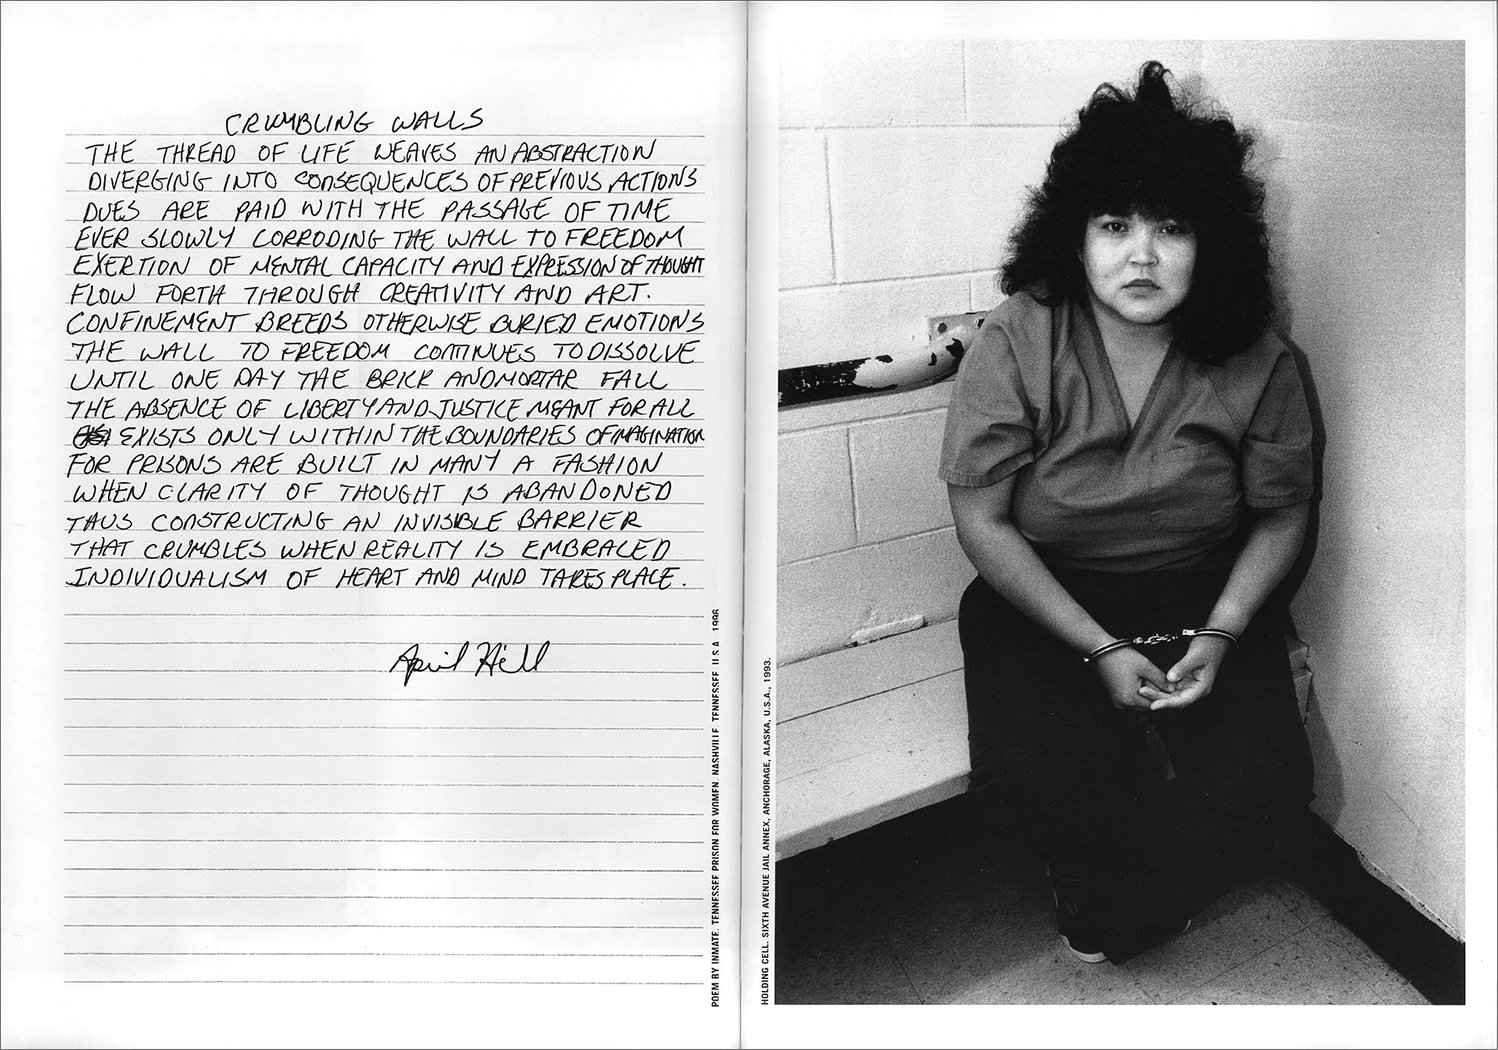 CRUMBLING WALLS
THE THREAD OF LIFE WEAVES AN ABSTRACTION
DIVERGING INTO CONSEQUENCES OF PREVIOUS ACTIONS
DUES ARE PAID WITH THE PASSAGE OF TIME
EVER SLOWLY CORRODING THE WALL TO FREEDOM
EXERTION OF MENTAL CAPACITY AND EXPRESSION OF THOUGHT
FLOW FORTH THROUGH CREATIVITY AND ART.
CONFINEMENT BREEDS OTHERWISE BURIED EMOTIONS
THE WALL TO FREEDOM CONTINUES TO DISSOLVE
UNTIL ONE DAY THE BRICK AND MORTAR FALL
THE ABSENCE OF LIBERTY AND JUSTICE MEANT FOR ALL
EXISTS ONLY WITHIN THE BOUNDARIES OF IMAGINATION
FOR PRISONS ARE BUILT IN MANY A FASHION
WHEN CLARITY OF THOUGHT IS ABANDONED
THUS CONSTRUCTING AN INVISIBLE BARRIER
THAT CRUMBLES WHEN REALITY IS EMBRACED
INDIVIDUALISM OF HEART AND MIND TAKES PLACE.
April Hill
POEM BY INMATE. TENNESSEE PRISON FOR WOMEN. NASHVILLE, TENNESSEE, U.S.A., 1996.
HOLDING CELL. SIXTH AVENUE JAIL ANNEX, ANCHORAGE, ALASKA, U.S.A., 1993.